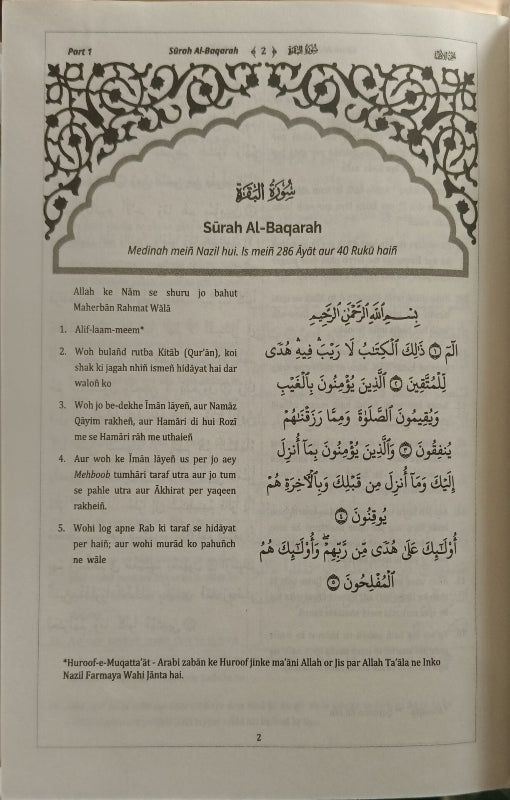 Part 1
Sūrah Al-Baqarah ﴾ 2 ﴿ سُوْرَةُ الْبَقَرَة
سُوْرَةُ الْبَقَرَة
Sūrah Al-Baqarah
Medinah meiñ Nazil hui. Is meiñ 286 Āyāt aur 40 Rukū haiñ
Allah ke Nām se shuru jo bahut
Maherbān Rahmat Wālā
1. Alif-laam-meem*
2. Woh bulañd rutba Kitāb (Qur'ān), koi
shak ki jagah nhiñ ismeñ hidāyat hai dar
waloñ ko
3. Woh jo be-dekhe Īmān lāyeñ, aur Namāz
Qāyim rakheñ, aur Hamāri di hui Rozī
me se Hamāri rāh me uthaieñ
4. Aur woh ke Īmān lāyeñ us per jo aey
Mehboob tumhāri taraf utra aur jo tum
se pahle utra aur Ākhirat per yaqeen
rakheiñ.
5. Wohi log apne Rab ki taraf se hidāyat
per haiñ; aur wohi murād ko pahuñch
ne wāle
بِسْمِ اللهِ الرَّحْمٰنِ الرَّحِيْمِ
الٓمّٓ ۝١ ذٰلِكَ الْكِتٰبُ لَا رَيْبَ ۛ فِيهِ ۛ هُدًى
لِّلْمُتَّقِينَ ۝٢ الَّذِينَ يُؤْمِنُونَ بِالْغَيْبِ
وَيُقِيمُونَ الصَّلٰوةَ وَمِمَّا رَزَقْنٰهُمْ
يُنفِقُونَ ۝٣ وَالَّذِينَ يُؤْمِنُونَ بِمَآ أُنزِلَ
إِلَيْكَ وَمَآ أُنزِلَ مِن قَبْلِكَ وَبِالْاٰخِرَةِ هُمْ
يُوقِنُونَ ۝٤
أُولٰٓئِكَ عَلٰى هُدًى مِّن رَّبِّهِمْ ۖ وَأُولٰٓئِكَ هُمُ
الْمُفْلِحُونَ ۝٥
*Huroof-e-Muqatta'āt - Arabi zabān ke Huroof jinke ma'āni Allah or Jis par Allah Ta'āla ne Inko
Nazil Farmaya Wahi Jānta hai.
2